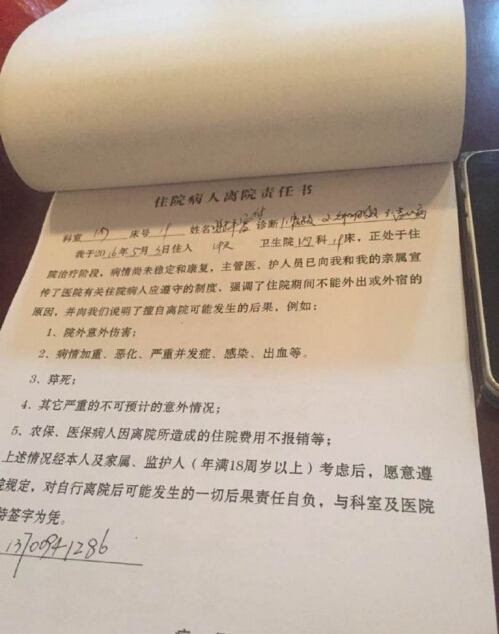 住院病人离院责任书
科室 内 床号 19 姓名 诊断 1.
我于2016年5月3日住入 卫生院内科19床，正处于住
院治疗阶段，病情尚未稳定和康复，主管医、护人员已向我和我的亲属宣
传了医院有关住院病人应遵守的制度，强调了住院期间不能外出或外宿的
原因，并向我们说明了擅自离院可能发生的后果，例如：
1、院外意外伤害；
2、病情加重、恶化、严重并发症、感染、出血等。
3、猝死；
4、其它严重的不可预计的意外情况；
5、农保、医保病人因离院所造成的住院费用不报销等；
上述情况经本人及家属、监护人（年满18周岁以上）考虑后，愿意遵
规定，对自行离院后可能发生的一切后果责任自负，与科室及医院
特签字为凭。
13700941286